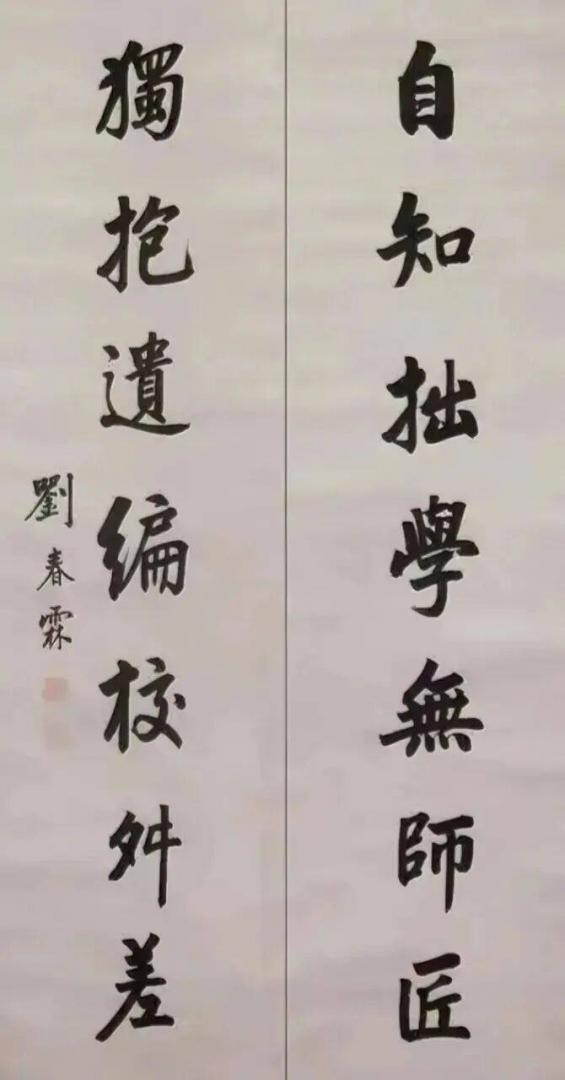 自知拙學無師匠
獨抱遺編校舛差
劉春霖